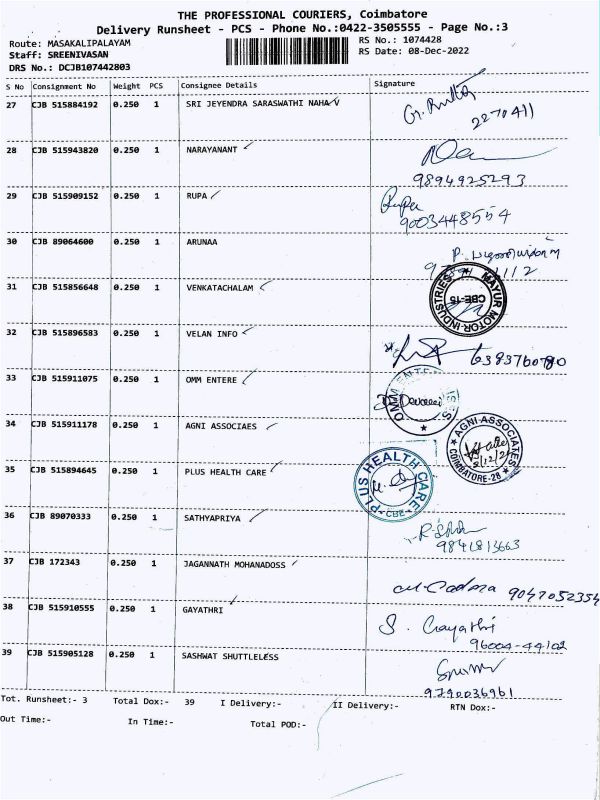 THE PROFESSIONAL COURIERS, Coimbatore
Delivery Runsheet - PCS - Phone No.:0422-3505555 - Page No.:3
Route: MASAKALIPALAYAM
RS No.: 1074428
Staff: SREENIVASAN
RS Date: 08-Dec-2022
DRS No.: DCJB107442803
S No Consignment No Weight PCS Consignee Details Signature
27 CJB 515884192 0.250 1 SRI JEYENDRA SARASWATHI NAHA V
2270411
28 CJB 515943820 0.250 1 NARAYANANT
9894925293
29 CJB 515909152 0.250 1 RUPA Rupa
9003448554
30 CJB 89064600 0.250 1 ARUNAA
31 CJB 515856648 0.250 1 VENKATACHALAM MAYUR MOTOR INDUSTRIES CBE-15
32 CJB 515896583 0.250 1 VELAN INFO
6383760780
33 CJB 515911075 0.250 1 OMM ENTERE
34 CJB 515911178 0.250 1 AGNI ASSOCIAES AGNI ASSOCIATES COIMBATORE-28
35 CJB 515894645 0.250 1 PLUS HEALTH CARE PLUS HEALTH CARE CBE
36 CJB 89070333 0.250 1 SATHYAPRIYA
9841813663
37 CJB 172343 0.250 1 JAGANNATH MOHANADOSS
9047052354
38 CJB 515910555 0.250 1 GAYATHRI S. Gayathri
96004-44102
39 CJB 515905128 0.250 1 SASHWAT SHUTTLELESS
9790036961
Tot. Runsheet:- 3 Total Dox:- 39 I Delivery:- II Delivery:- RTN Dox:-
Out Time:- In Time:- Total POD:-